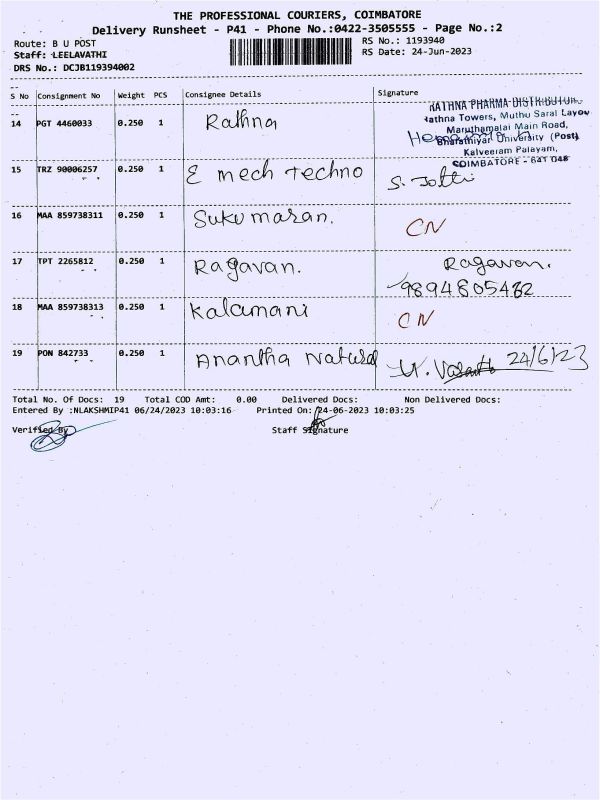 THE PROFESSIONAL COURIERS, COIMBATORE
Delivery Runsheet - P41 - Phone No.:0422-3505555 - Page No.:2
Route: B U POST RS No.: 1193940
Staff: LEELAVATHI RS Date: 24-Jun-2023
DRS No.: DCJB119394002
S No Consignment No Weight PCS Consignee Details Signature
RATHNA PHARMA DISTRIBUTORS
Rathna Towers, Muthu Saral Layou
Maruthamalai Main Road,
Bharathiyar University (Post)
Kalveeram Palayam,
COIMBATORE - 641 046
14 PGT 4460033 0.250 1 Rathna
15 TRZ 90006257 0.250 1 E mech techno S. Jothi
16 MAA 859738311 0.250 1 Sukumaran. CN
17 TPT 2265812 0.250 1 Ragavan. Ragavan.
9894805432
18 MAA 859738313 0.250 1 Kalamani CN
19 PON 842733 0.250 1 Anantha Natural 24/6/23
Total No. Of Docs: 19 Total COD Amt: 0.00 Delivered Docs: Non Delivered Docs:
Entered By :NLAKSHMIP41 06/24/2023 10:03:16 Printed On: 24-06-2023 10:03:25
Verified By Staff Signature